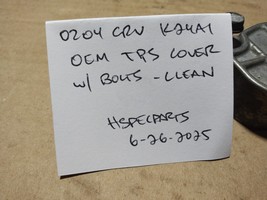 0204 CRV K24A1
OEM TPS COVER
W/ BOLTS - CLEAN
HSPECPARTS
6-26-2025